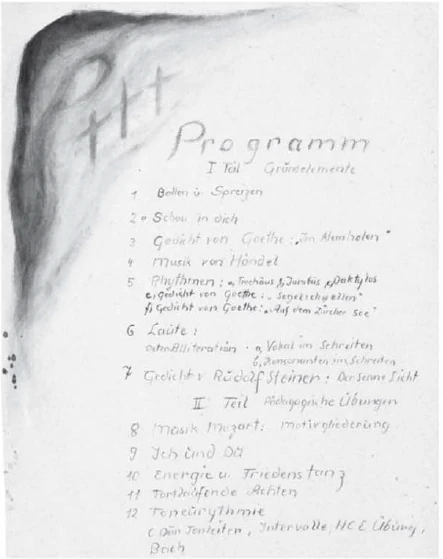 Programm
I Teil Grundelemente
1 Ballen u. Spreizen
2. Schau in dich
3 Gedicht von Goethe: „Im Atemholen"
4 Musik von Händel
5 Rhythmen: a, Trochäus b, Jambus Daktylos
e, Gedicht von Goethe:
f, Gedicht von Goethe: „Auf dem Zürcher See"
6 Laute:
Alliteration a, Vokal im Schreiten
b, Konsonanten im Schreiten
7 Gedicht v Rudolf Steiner: Der Sonne Licht
II Teil Pädagogische Übungen
8 Musik Mozart: Motivgliederung
9 Ich und Du
10 Energie u. Friedenstanz
11 Fortlaufende Achten
12 Toneurythmie
C Dur Tonleiter, Intervalle, Übung,
Bach